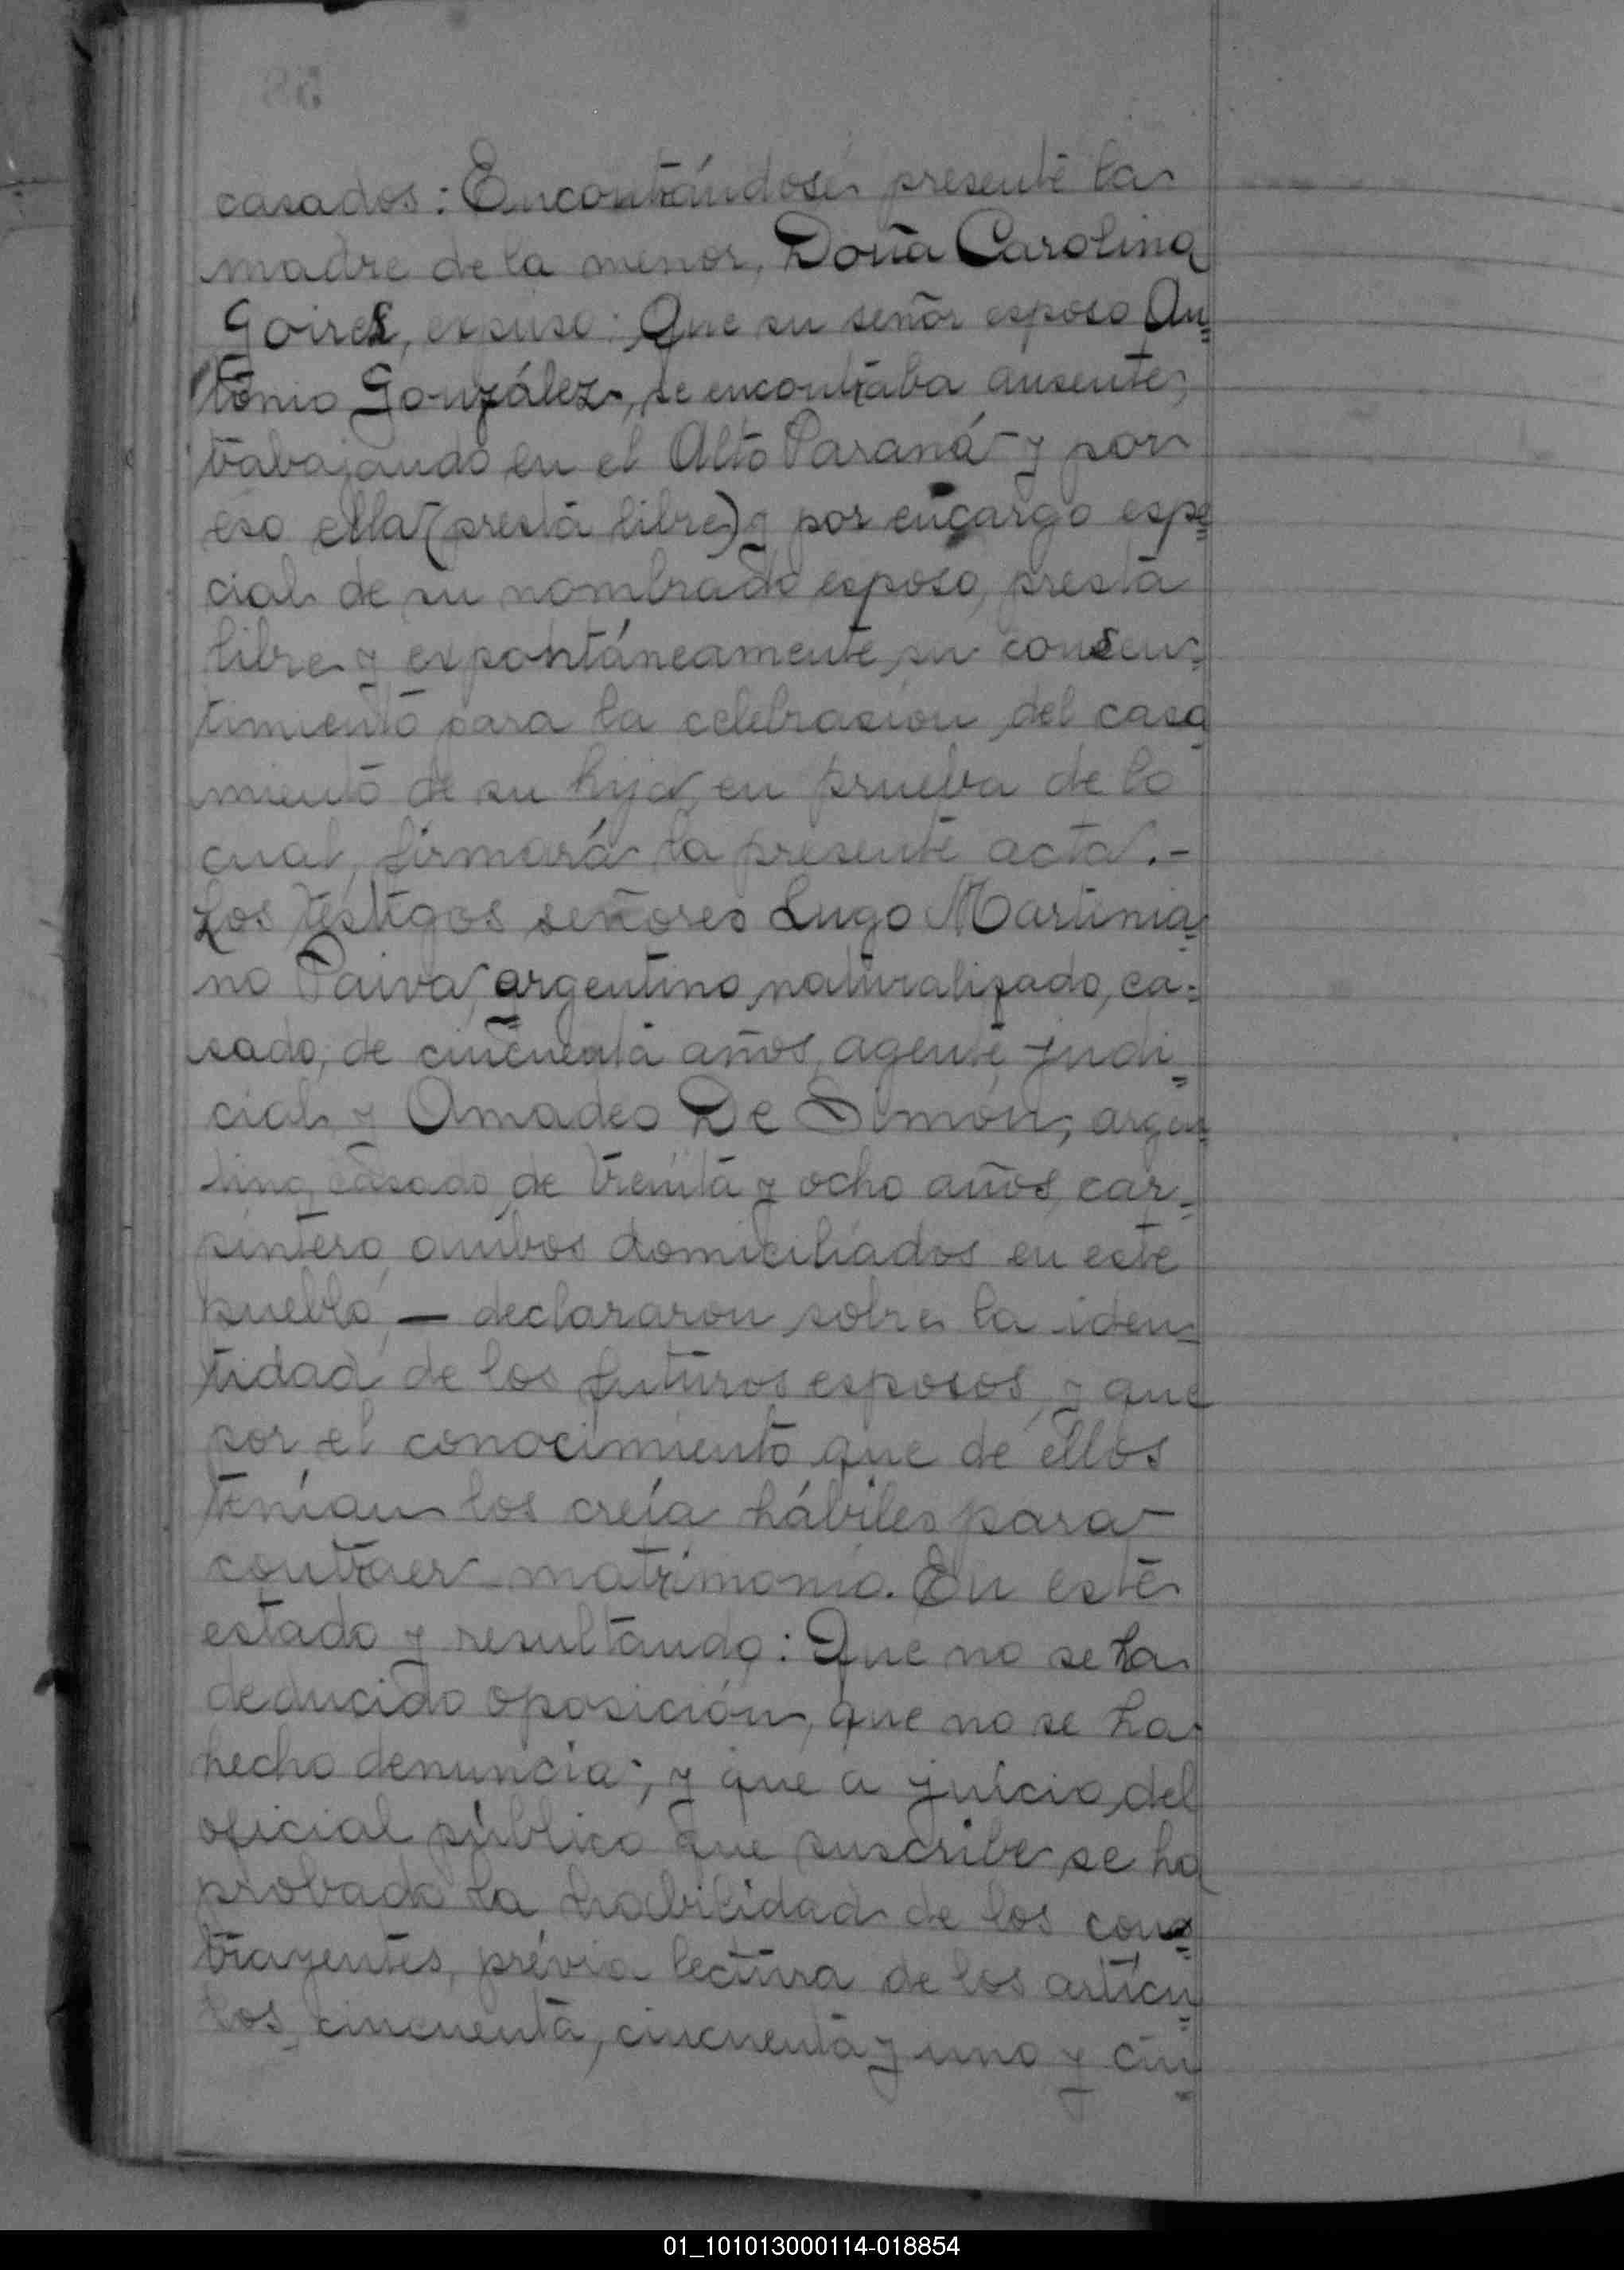 casados: Encontrándose presente la
madre de la menor, Doña Carolina
Goires, expuso: Que su señor esposo An=
tonio González, se encontraba ausente,
trabajando en el Alto Paraná y por
eso ella (presta libre) y por encargo espe=
cial de su nombrado esposo, presta
libre y expontáneamente su consen=
timiento para la celebrasión del casa
miento de su hija, en prueba de lo
cual, firmará la presente acta.-
Los testigos señores Lugo Martinia=
no Paiva, argentino naturalizado, ca=
sado, de cincuenta años, agente judi=
cial y Amadeo De Simón, argen=
tino, casado, de treinta y ocho años, car=
pintero, ambos domiciliados en este
pueblo, — declararon sobre la iden=
tidad de los futuros esposos, y que
por el conocimiento que de ellos
tenían los creía hábiles para
contraer matrimonio. En este
estado y resultando: Que no se ha
deducido oposición, que no se ha
hecho denuncia; y que a juício del
oficial público que suscribe, se ha
probado la habilidad de los con=
trayentes, prévia lectura de los artícu=
los, cincuenta, cincuenta y uno y cin=
01_101013000114-018854